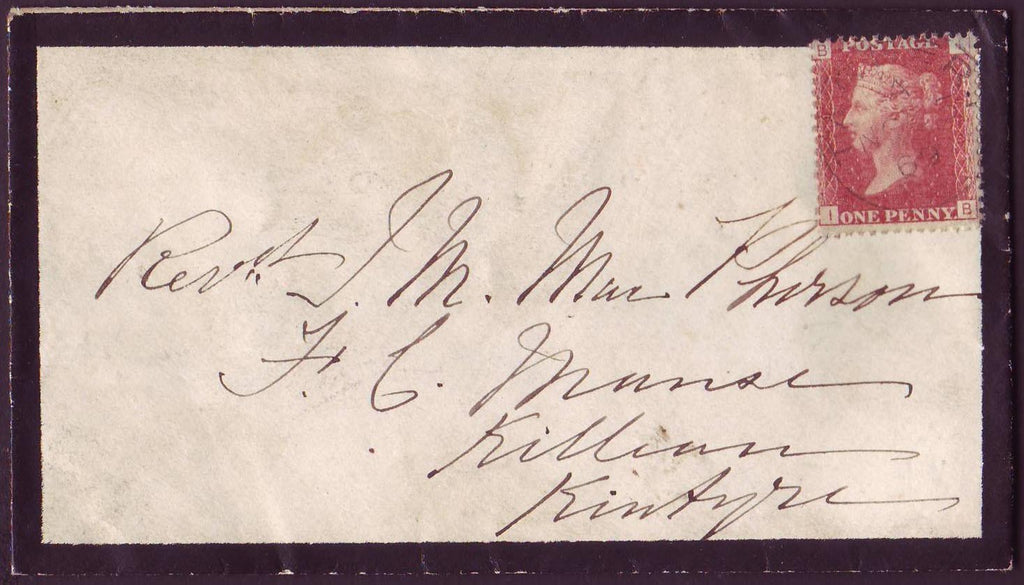 B
POSTAGE
I ONE PENNY B
Revd. J. M. MacPherson
F. C. Manse
Killean
Kintyre